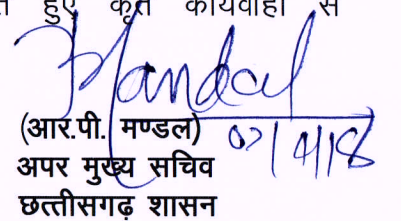 हुए कृत कार्यवाही से
Mandal
(आर.पी. मण्डल)
अपर मुख्य सचिव
छत्तीसगढ़ शासन